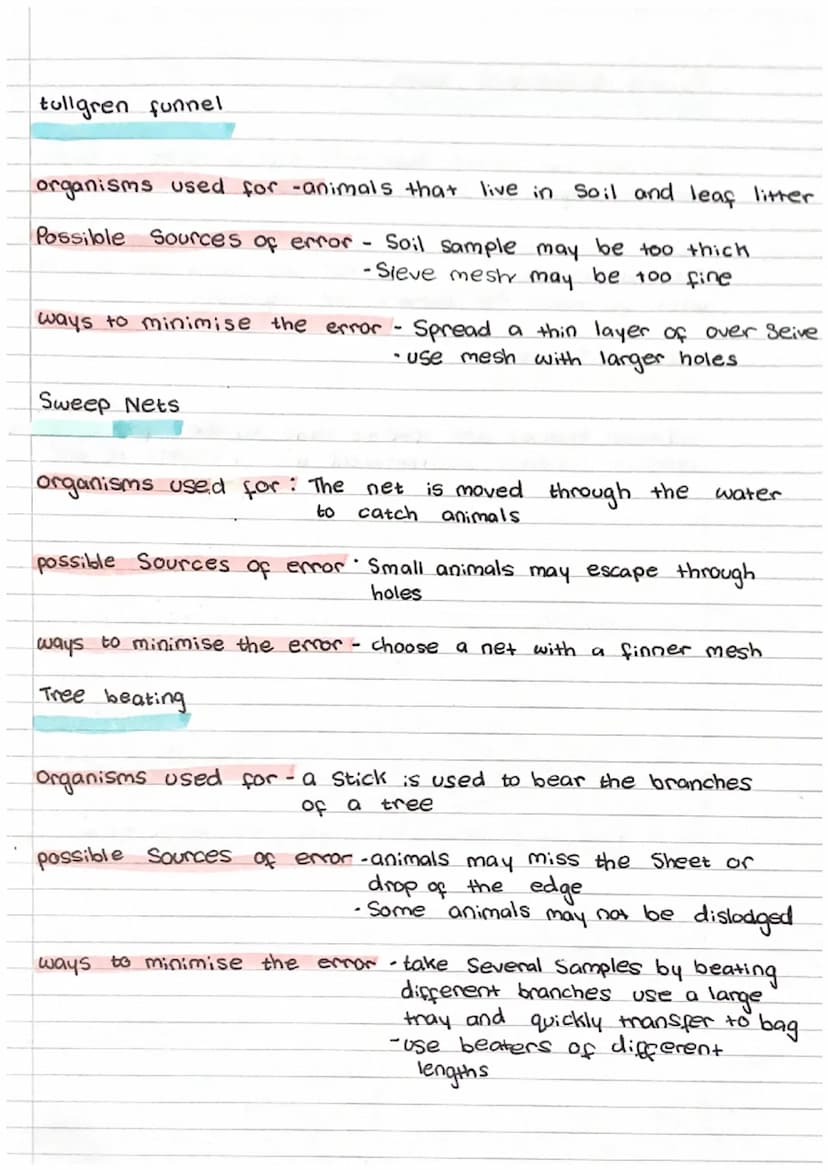 tullgren funnel
organisms used for - animals that live in soil and leaf litter
Possible Sources of error - Soil sample may be too thick
- Sieve mesh may be too fine
ways to minimise the error - Spread a thin layer of over Seive
· use mesh with larger holes
Sweep Nets
organisms used for : The net is moved through the water
to catch animals
possible Sources of error · Small animals may escape through
holes
ways to minimise the error - choose a net with a finner mesh
Tree beating
organisms used for - a stick is used to bear the branches
of a tree
possible Sources of error - animals may miss the sheet or
drop of the edge
· Some animals may not be dislodged
ways to minimise the error · take several samples by beating
different branches use a large
tray and quickly transfer to bag
- use beaters of different
lengths